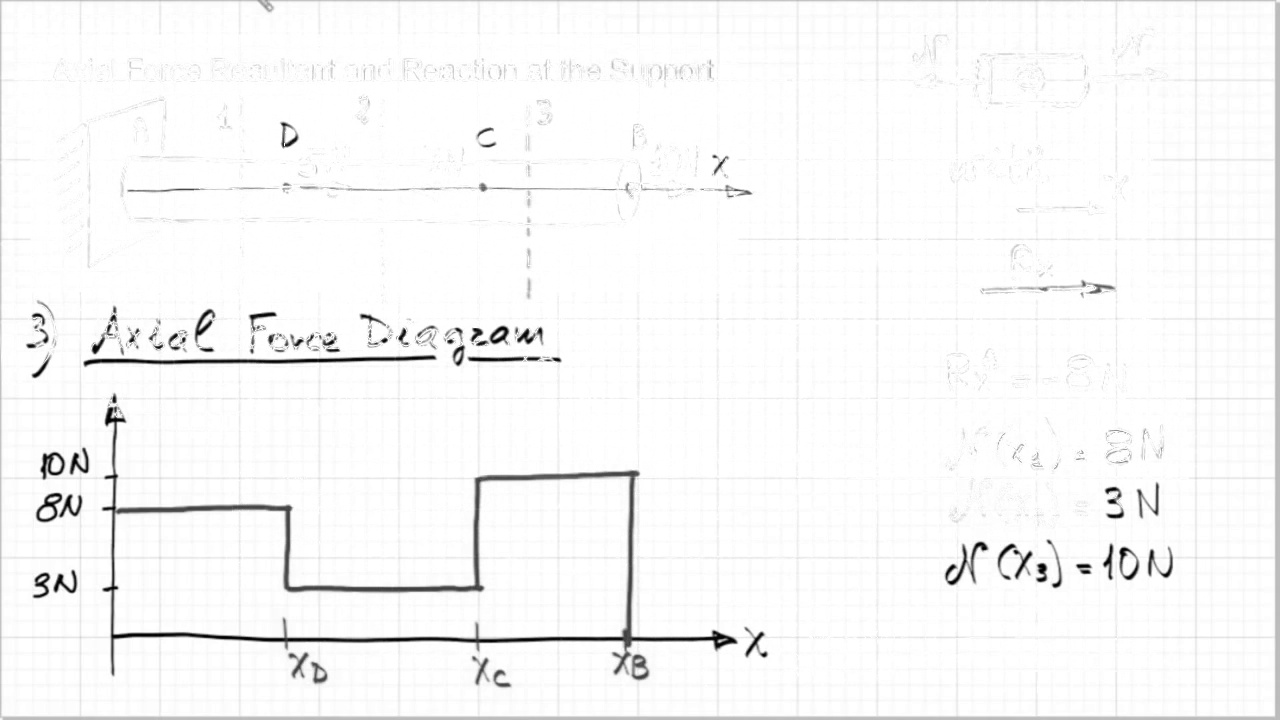 Axial Force Resultant and Reaction at the Support
A 1 D 2 C 3 B
5N 10N X
N N
X
Rx
3) Axial Force Diagram
10N
8N
3N
XD XC XB X
= -8N
N(x1) = 8N
= 3N
N(x3) = 10N